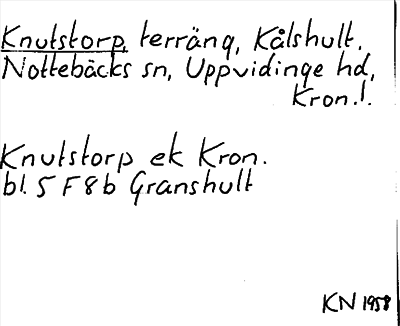 Knutstorp, terräng, Kålshult,
Nottebäcks sn, Uppvidinge hd,
Kron.l.
Knutstorp ek Kron.
bl. 5 F 8 b Granshult
KN 1958